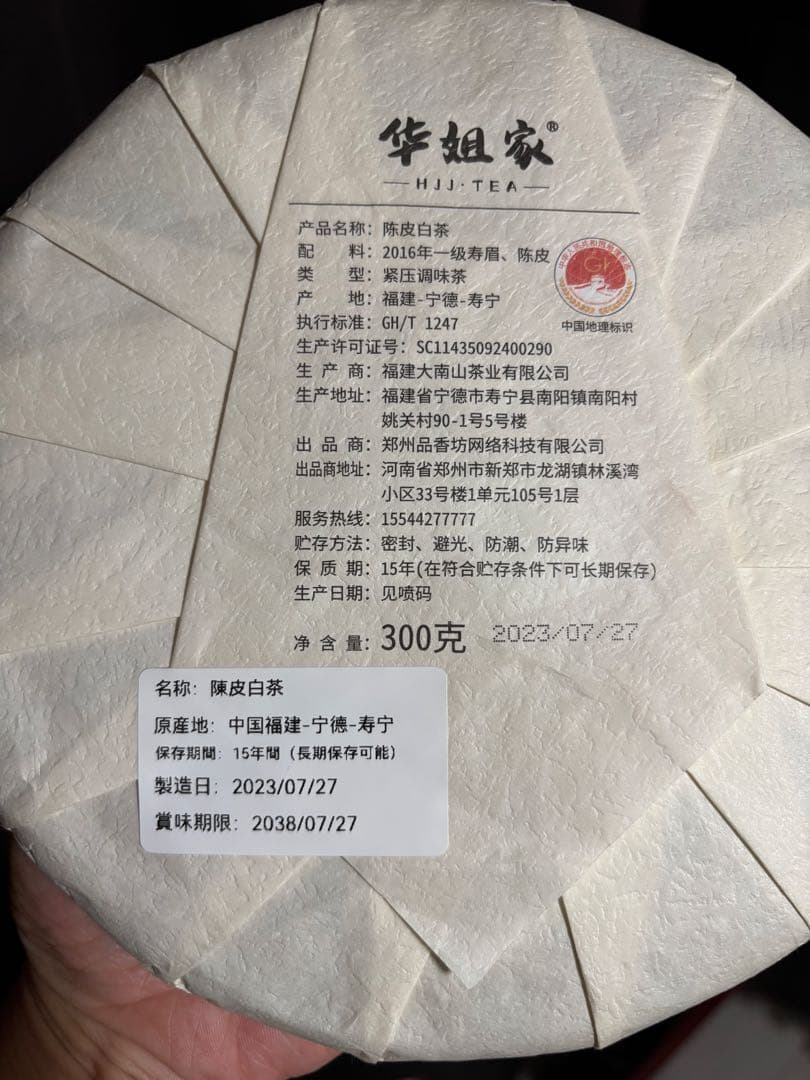 华姐家®
HJJ·TEA
产品名称：陈皮白茶
配料：2016年一级寿眉、陈皮
类型：紧压调味茶
产地：福建-宁德-寿宁
执行标准：GH/T 1247
中国地理标识
生产许可证号：SC11435092400290
生产商：福建大南山茶业有限公司
生产地址：福建省宁德市寿宁县南阳镇南阳村
姚关村90-1号5号楼
出品商：郑州品香坊网络科技有限公司
出品商地址：河南省郑州市新郑市龙湖镇林溪湾
小区33号楼1单元105号1层
服务热线：15544277777
贮存方法：密封、避光、防潮、防异味
保质期：15年(在符合贮存条件下可长期保存)
生产日期：见喷码
净含量：300克 2023/07/27
名称：陳皮白茶
原産地：中国福建-宁德-寿宁
保存期間：15年間（長期保存可能）
製造日：2023/07/27
賞味期限：2038/07/27